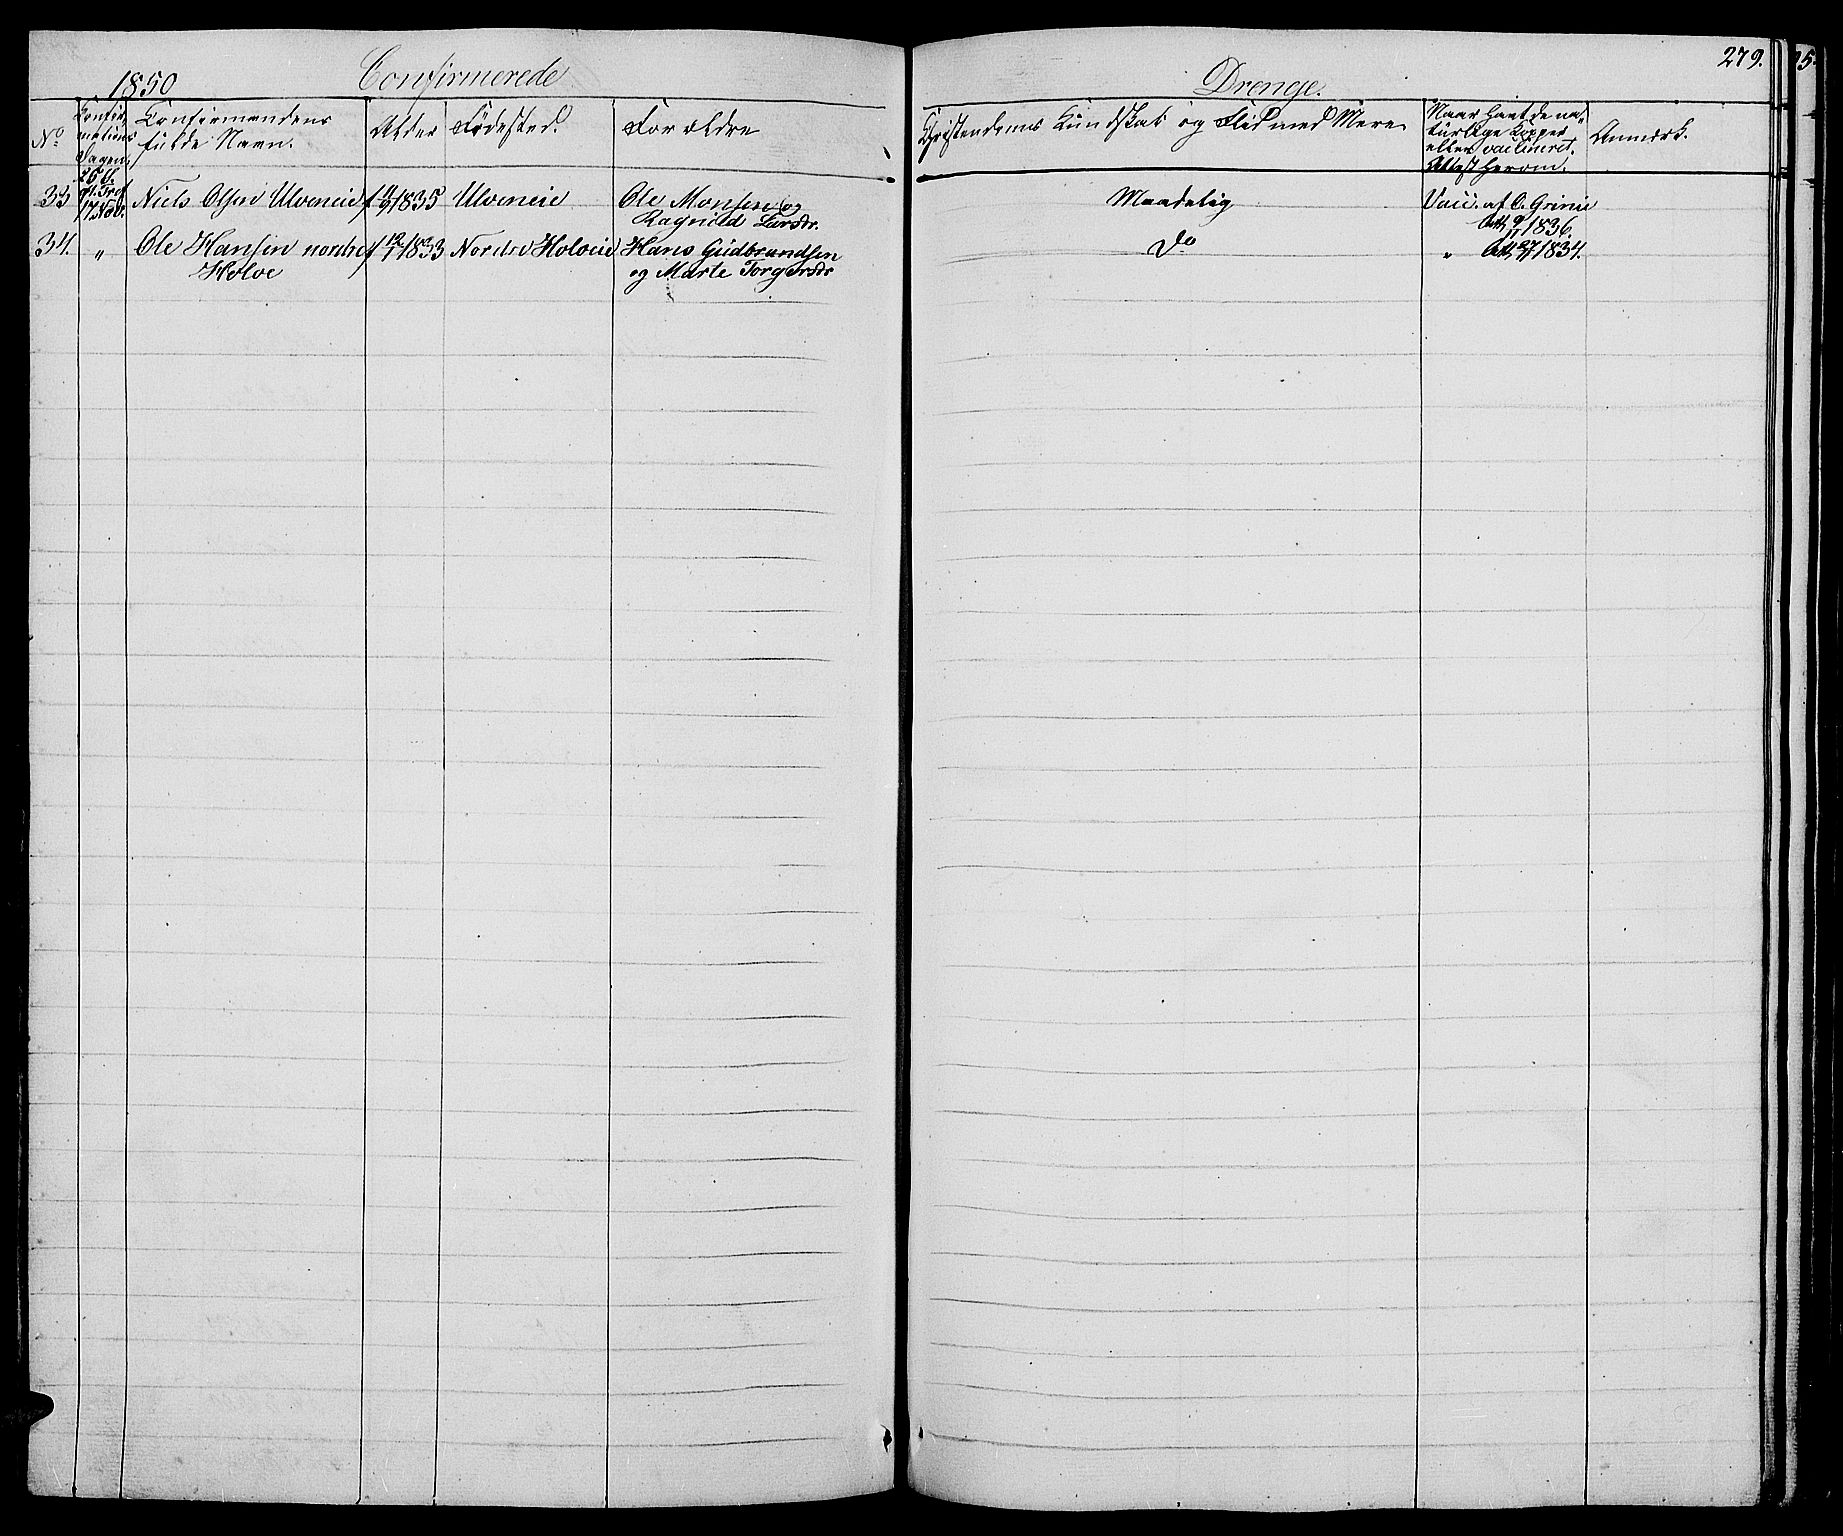 1850 Confirmerede
Drenge.
279.
No
Confir-
mations
Dagen.
Confirmandens
fulde Navn.
Alder
Fødested.
Forældre
Christendoms Kundskab og Flid med Mere
Naar havt de na-
turlige Kopper
eller vaccineret.
Attest herom.
Anmærk.
33
17 Nov.
Niels Olsen Ulveneie
f 11/9 1835
Ulveneie
Ole Monsen og
Ragnild Larsdr.
Maadelig
Vacc. af O. Grinie
Att. 9/11 1836.
34. " Ole Hansen nordre
Holve
f 12/7 1833
Nordre Holveie
Hans Gudbrandsen
og Marte Torgersdr
Do
" Att. 27/7 1834.